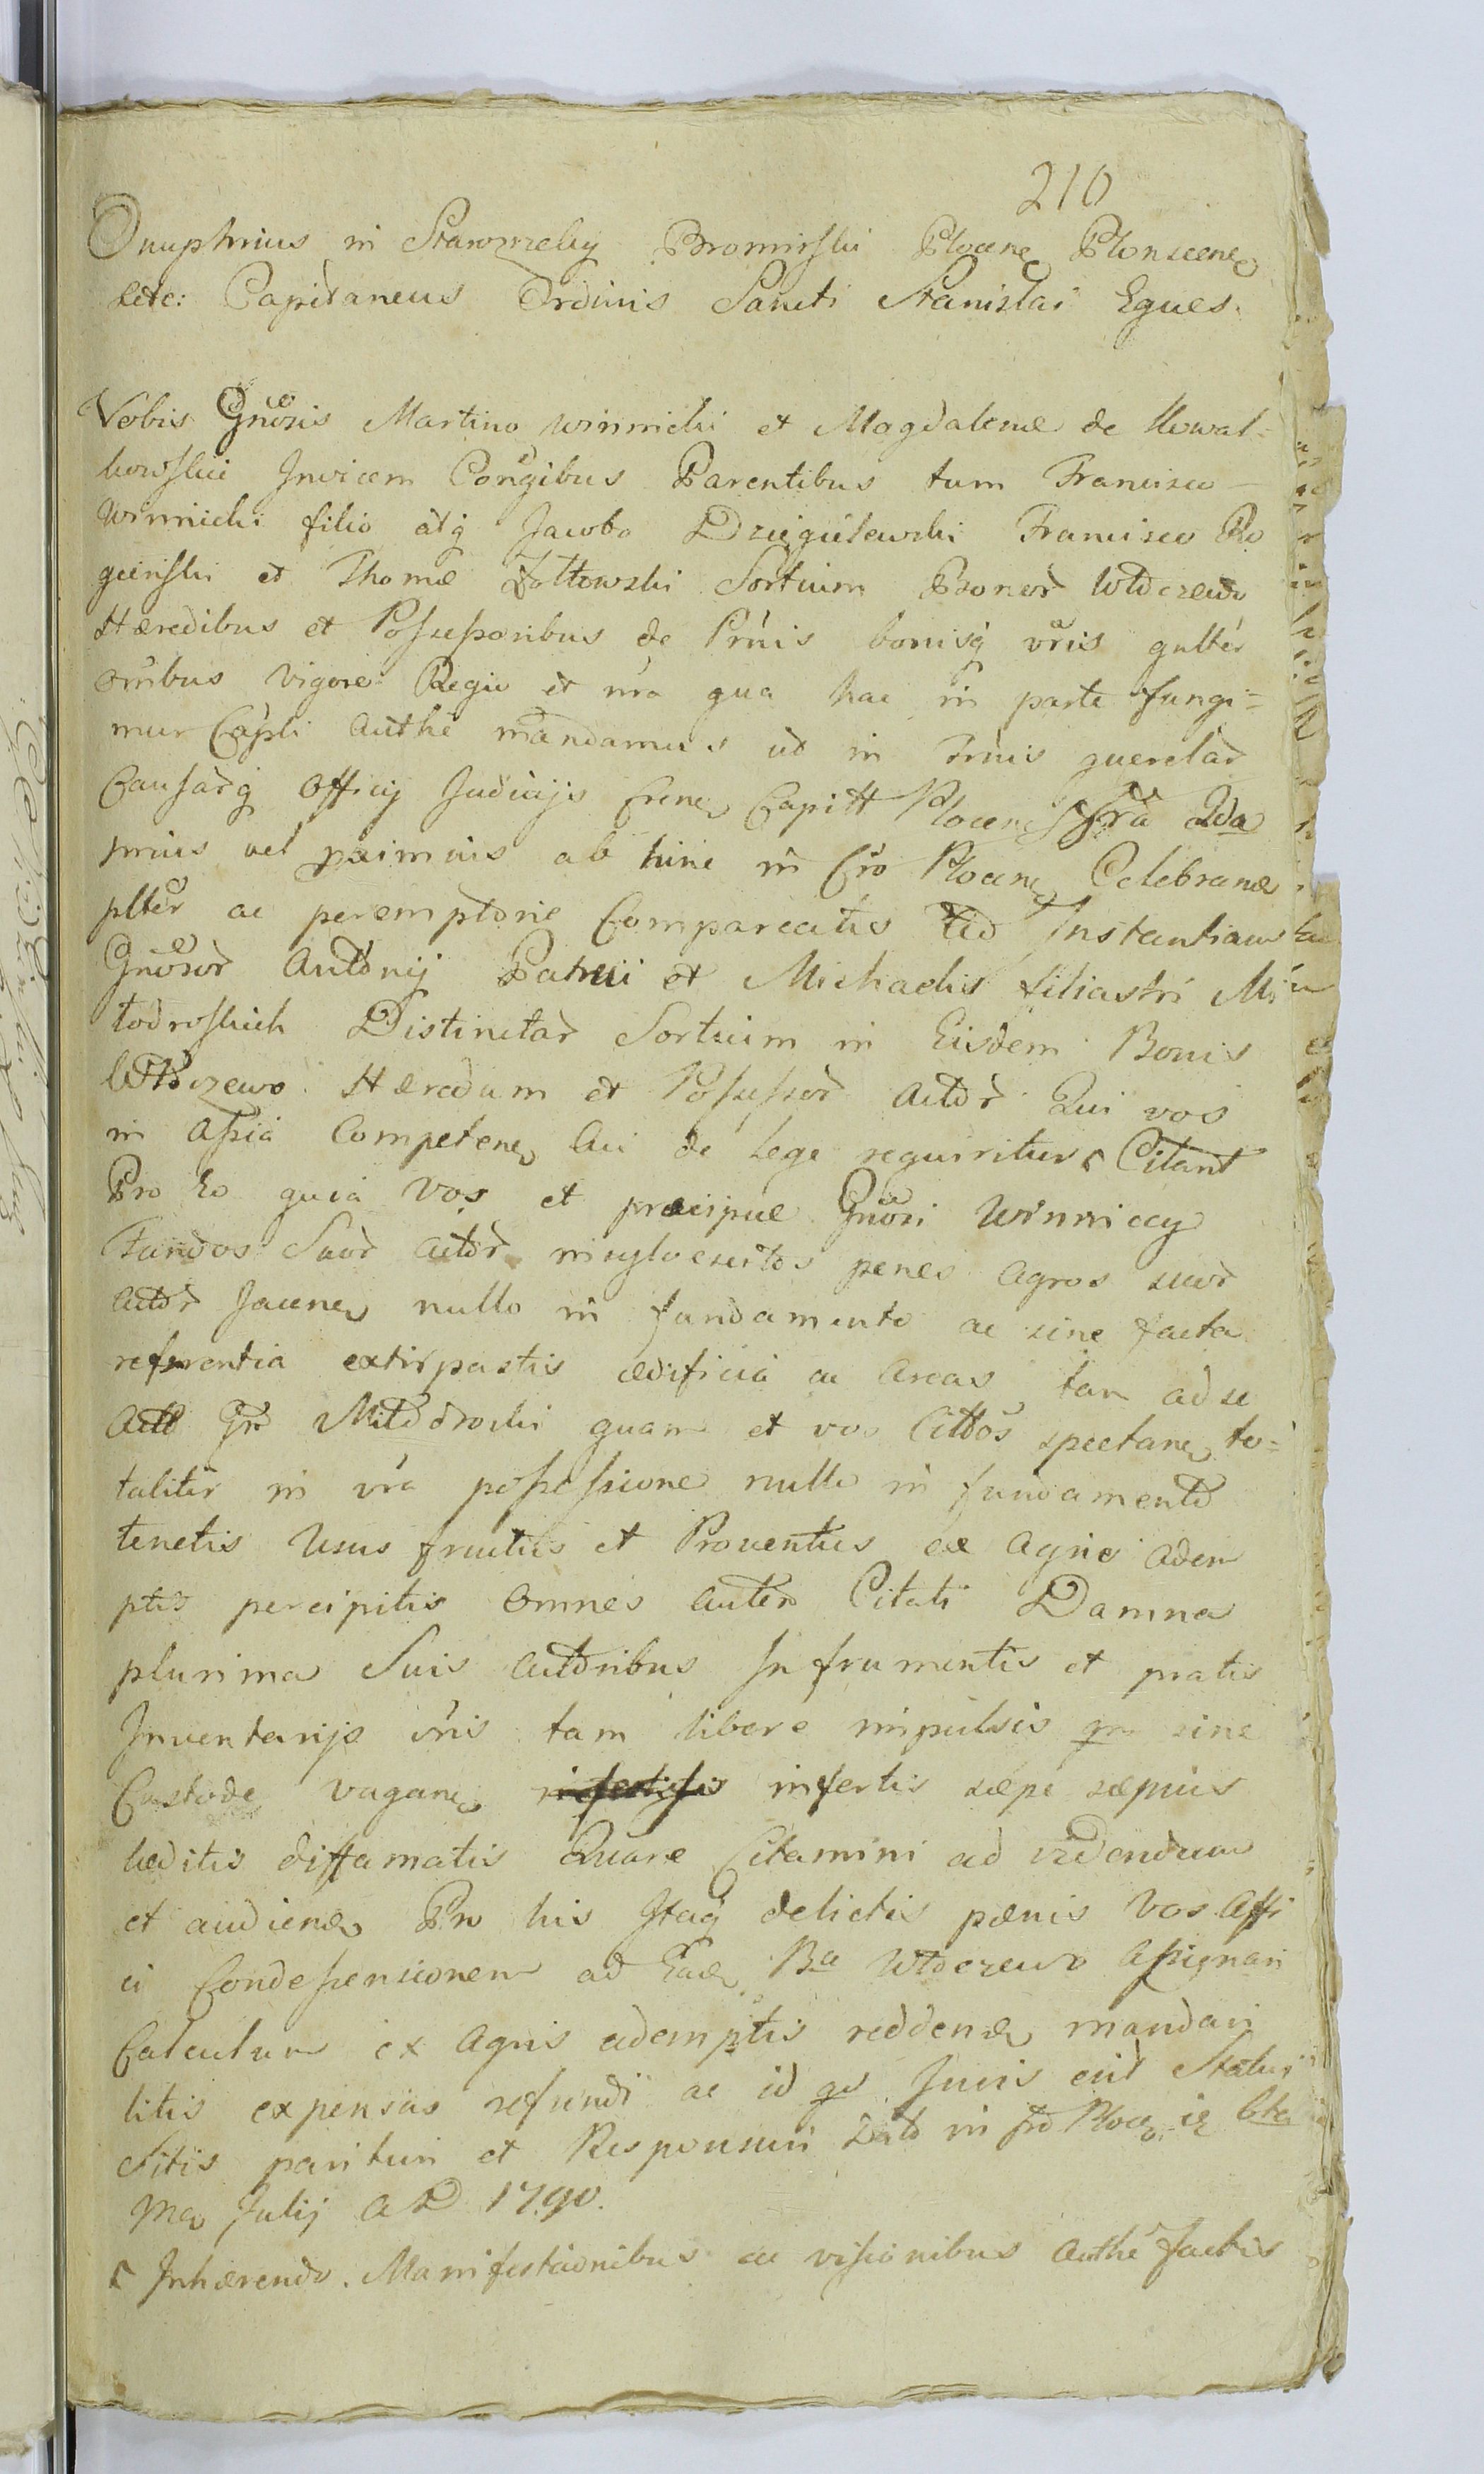 210
Onuphrius in Staromzeby Bromirski Plocen Plonscen
etc: Capitaneus Ordinis Sancti Stanislai Eques.
Vobis Gnosis Martino Winnicki et Magdalenæ de Kowal-
kowskie Invicem Conjgibus Parentibus tum Francisco
Winnicki filio atq Jacobo Dziegielewski Francisco Ro
gienski et Thomæ Żołtowski Sortium Bonor Włoczewo
Hæredibus et Possessoribus de Prnis bonisq vris gnlter
omnibus vigore Regia et nra qua hac in parte fungi=
mur Capli Authe mandamus ut in Trnis querelar
Causarq Officij Judicijs Cren Capitt Plocen
prius vel proximius ab hinc in Cro Plocen Celebrand
plter ac peremptorie Compareatis Ad Instantiam
Gnosor Antonij Patrui et Michaelis filiastri Mi
łodroskich Distinctar Sortium in Eisdem Bonis
Włoczewo Hæredum et Possessor Actor Qui vos
in Assia Competen Cui de Lege requiritur Citant
Pro Eo quia Vos et præcipue Gnosi Winniccy
Fundos Suor Actor insylvescitos penes Agros suor
Actor Jacen nullo in fundamento ac sine facta
referentia extirpastis ædificia ac Areas tam ad se
Act Gr Miłodroski quam et vos Cittos spectan to=
taliter in vra possessione nullo in fundamento
tenetis Usus fructus et Proventus ex Agris adem
ptis percipitis Omnes autem Citati Damna
plurima Suis Actoribus In frumentis et pratis
Inventarijs vris tam libere impulsis qm sine
Custode vagan infertis sæpe sæpius
læditis diffamatis Quare Citamini ad videndum
et audiend Pro his Itaq delictis pænis Vos Affi
ci Condescensionem ad Ead Ba Włoczewo Assignari
Calculum ex Agris ademptis reddend mandari
litis expensas refundi ac id qd Juris erit Statui
Sitis parituri et Responsuri Dat in Plocen
Ma Julij A D 1790.
Inhærendo Manifestaonibus ac visionibus Authe factis